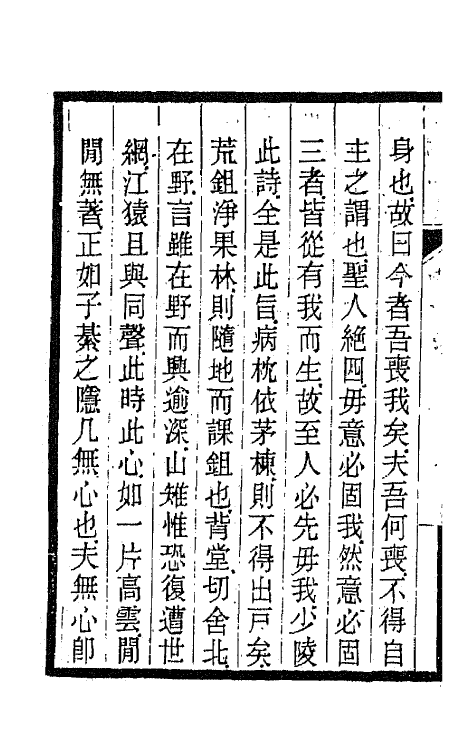 身也故曰今者吾喪我矣夫吾何喪不得自
主之謂也聖人絕四毋意必固我然意必固
三者皆從有我而生故至人必先毋我少陵
此詩全是此旨病枕依茅棟則不得出戸矣
荒鉏淨果林則隨地而課鉏也背堂切舍北
在野言雖在野而興逾深山雉惟恐復遭世
網江猿且與同聲此時此心如一片高雲閒
閒無著正如子綦之隱几無心也夫無心卽